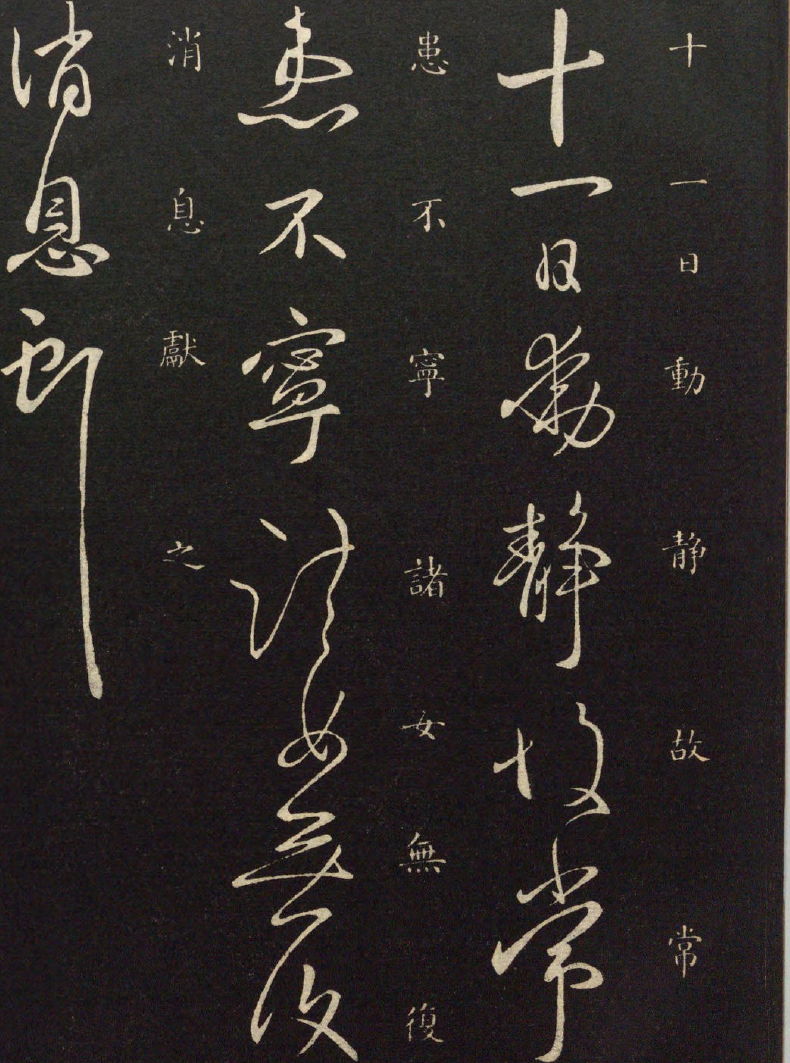 十一日動静故常
十一日動静故常
患不寧諸女無復
患不寧諸女無復
消息獻之
消息